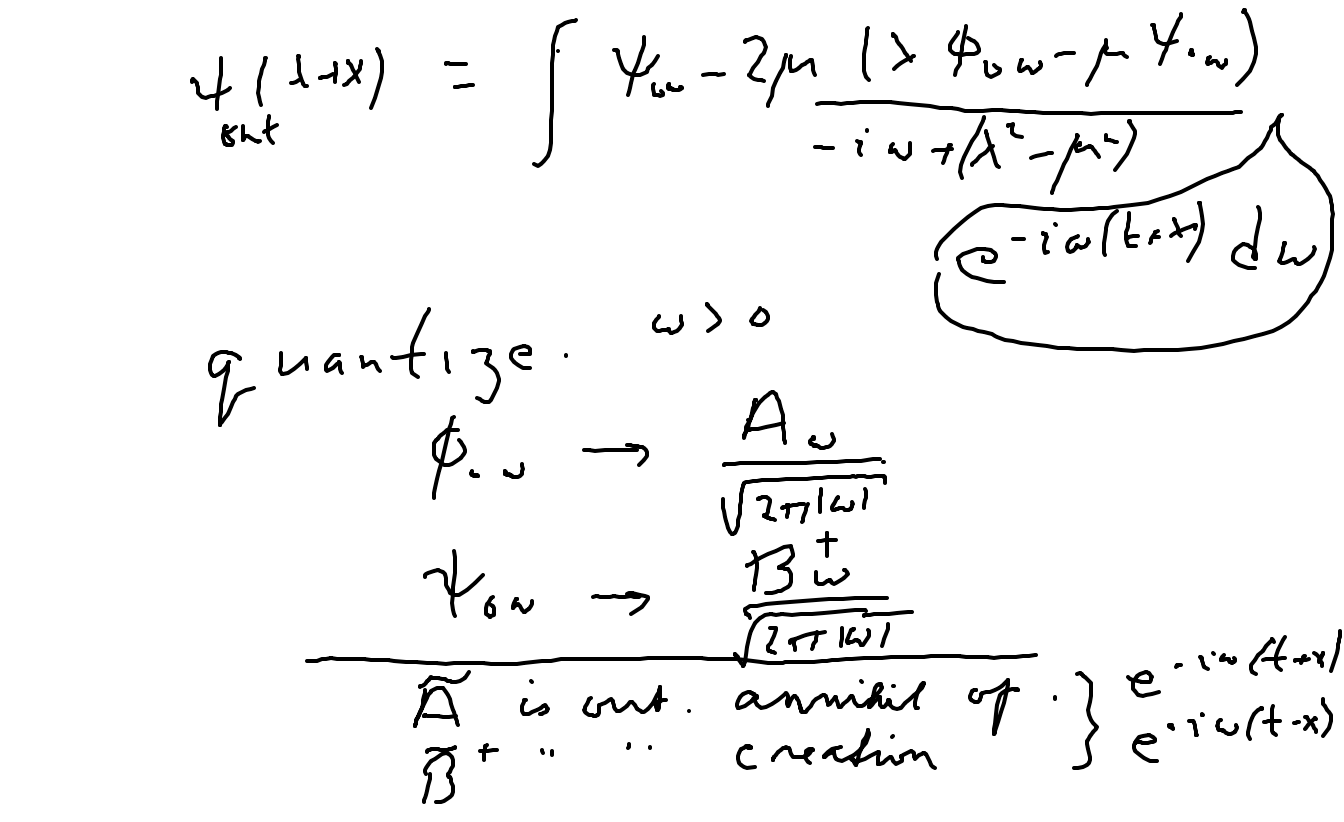 ψ_out (t+x) = ∫ ψ_{0ω} - 2μ (λ ϕ_{0ω} - μ ψ_{0ω}) / (-iω + (λ² - μ²))
e^{-iω(t+x)} dω
quantize. ω > 0
ϕ_{0ω} → A_ω / √(2π|ω|)
ψ_{0ω} → B†_ω / √(2π|ω|)
Ã is out. annihil op. } e^{-iω(t+x)}
B̃† " " creation } e^{-iω(t-x)}